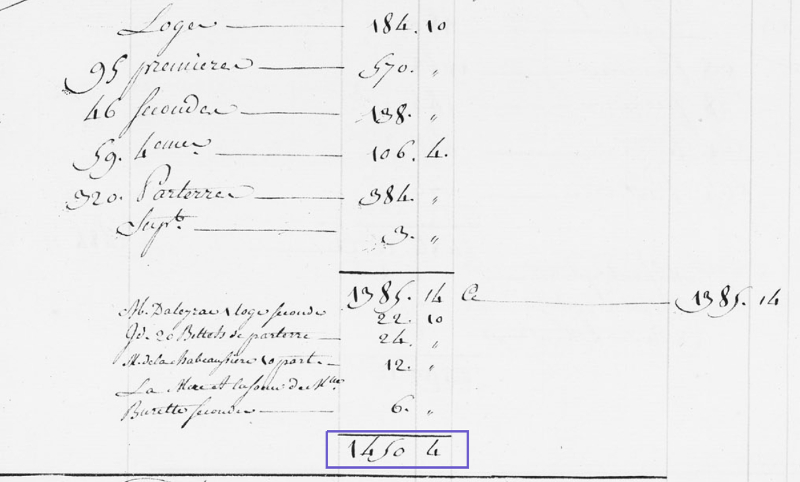 Loges 184. 10
95 premieres 570. "
46 secondes 138. "
59. 4emes 106. 4.
320. Parterres 384. "
Supt. 3. "
1385. 14 C 1385. 14
M. Daleyrac 1 loge seconde 22. 10
Id. 20 Billets de parterre 24. "
M. de la chabeaussiere 10 part. 12. "
La Mere et la soeur de Mlle
Burette secondes 6. "
1450 4